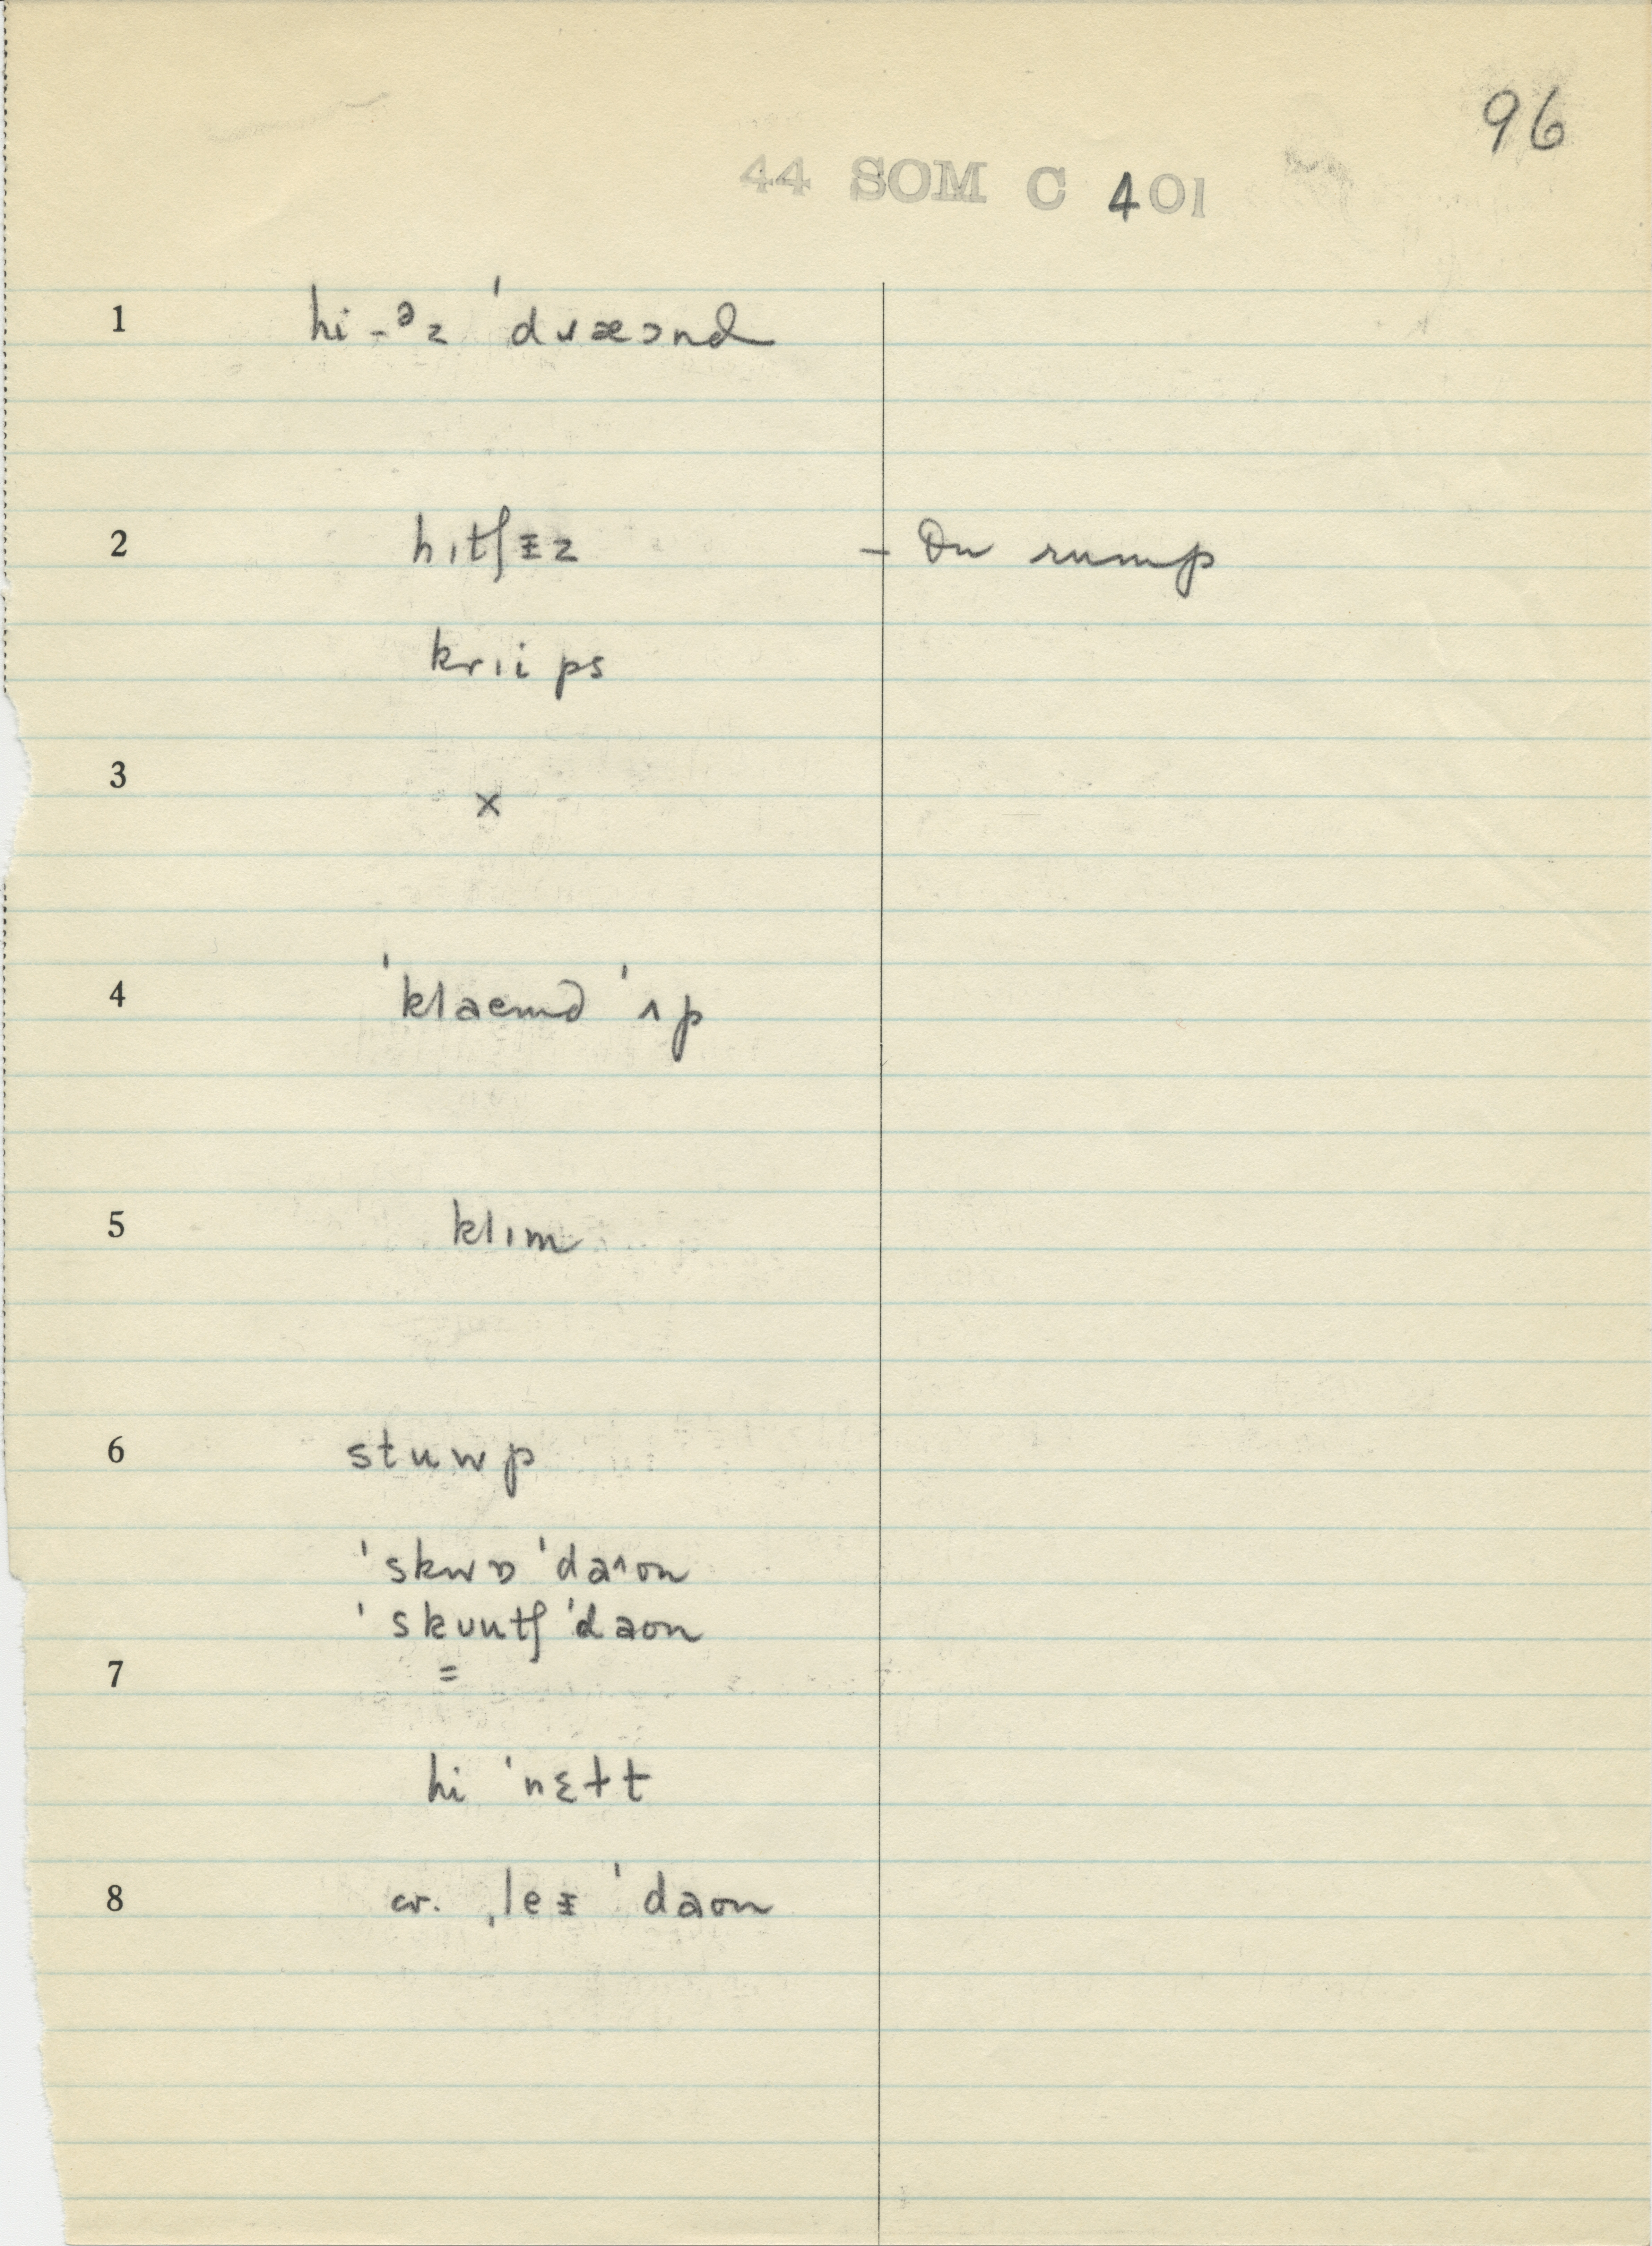 96
44 SOM C 401
1 hi-ᵊz ˈdɹæɔnd
2 hɪtʃᵻz – On rump
krɪi ps
3 ×
4 ˈklaemd ˈʌp
5 klɪm
6 stuwp
ˈskwɒ ˈdaˑon
ˈskuutʃ ˈdaon
7 =
hi ˈnɛɫt
8 cv. ˌleᵻ ˈdaon